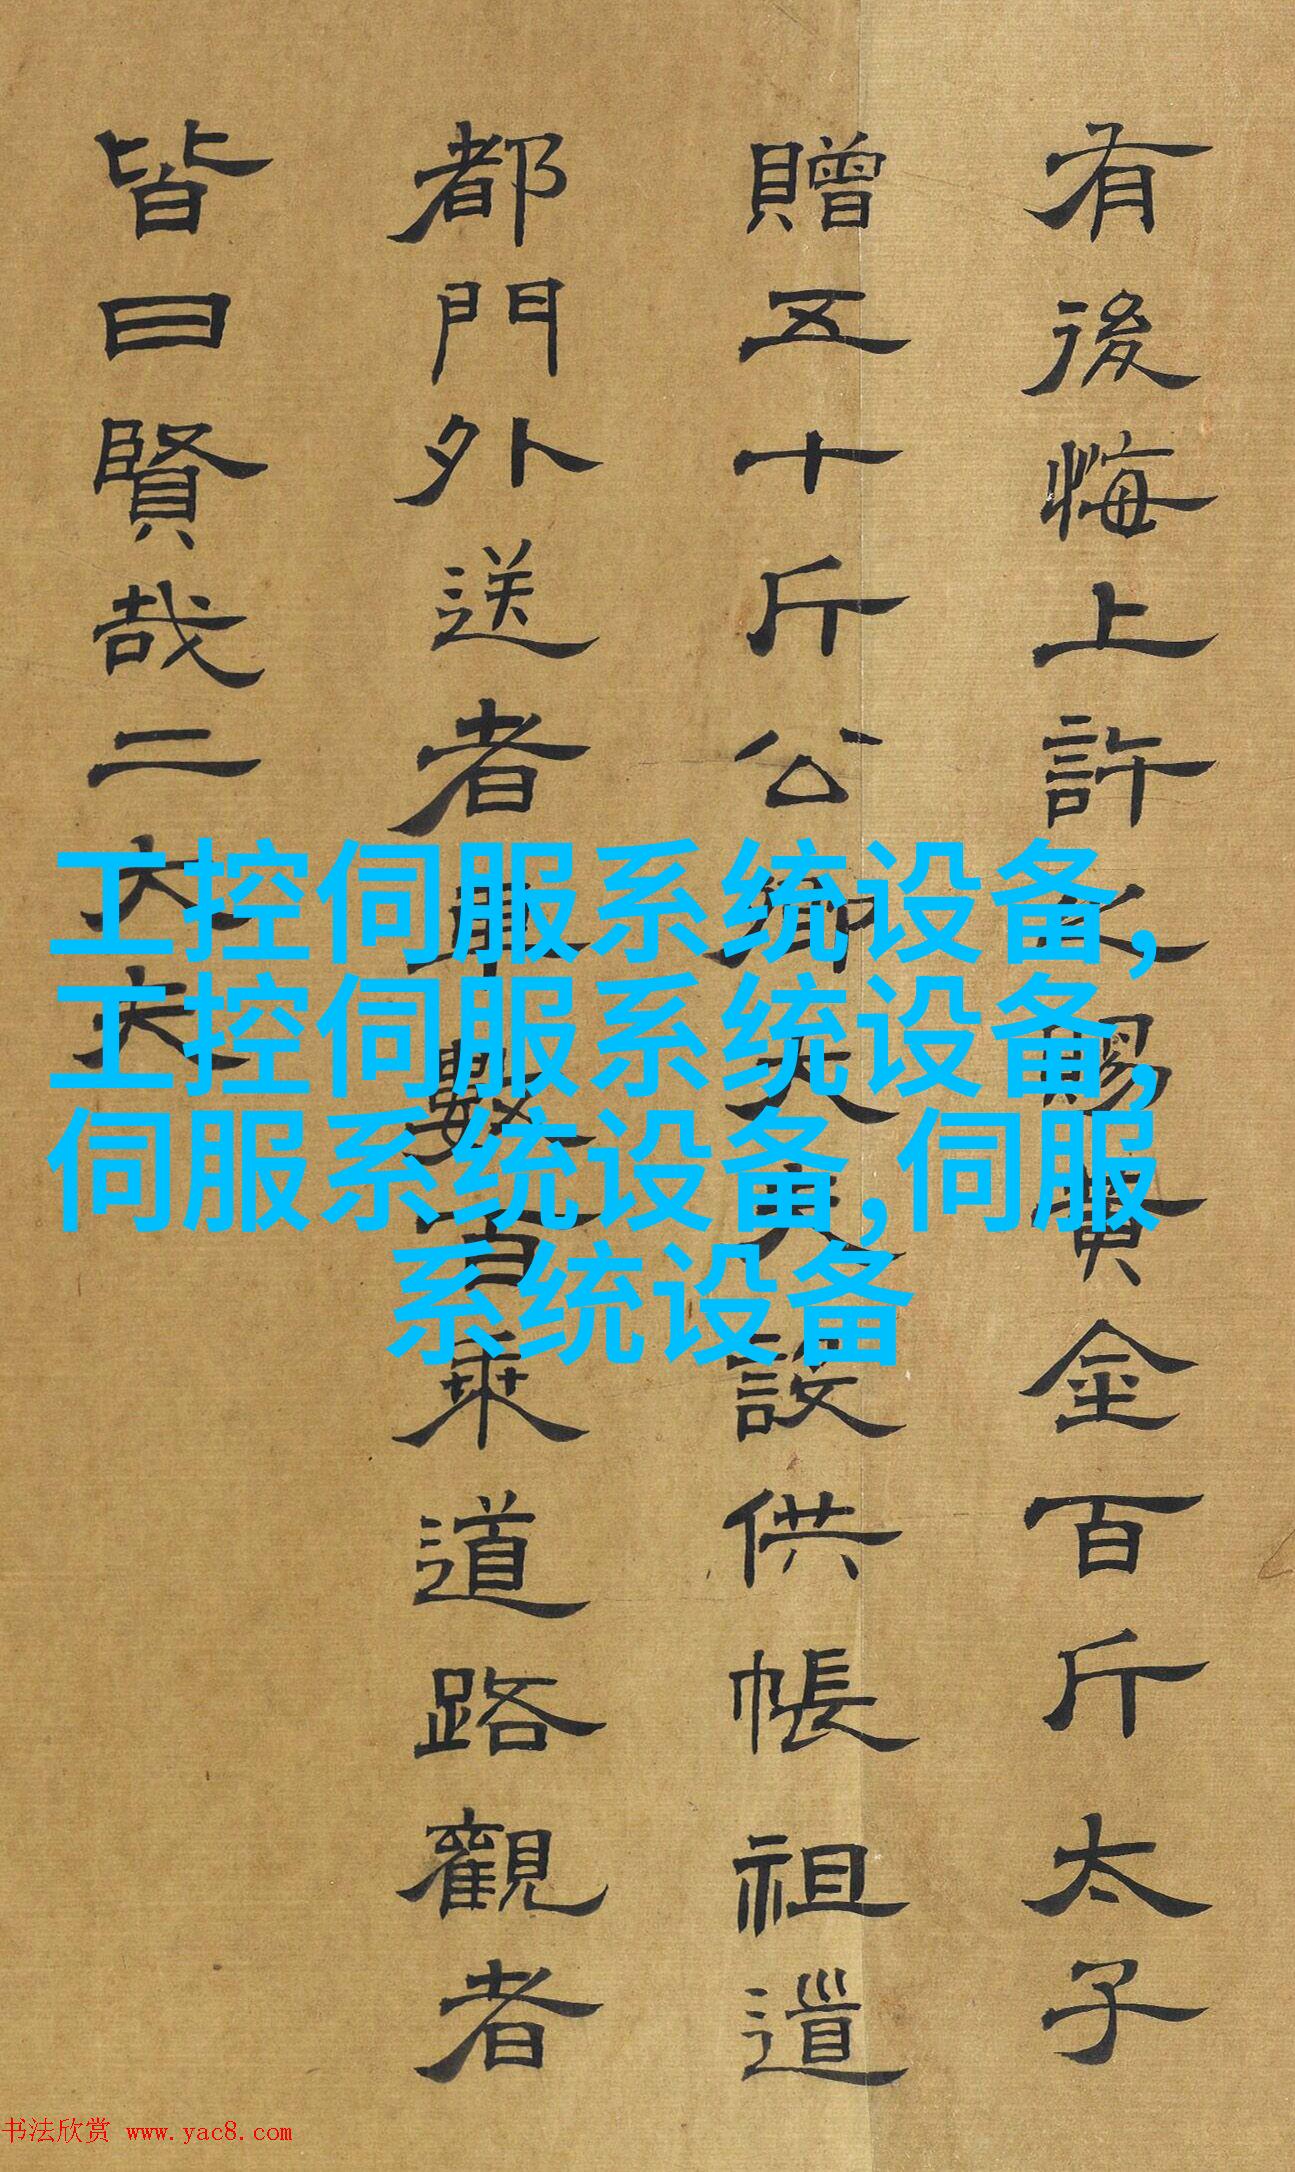 有後悔上許之賜黃金百斤太子
贈五十斤公卿大夫設供帳祖道
都門外送者車數百乘道路觀者
皆曰賢哉二大夫
工控伺服系统设备,
工控伺服系统设备,
伺服系统设备,伺服
系统设备
书法欣赏 www.yac8.com